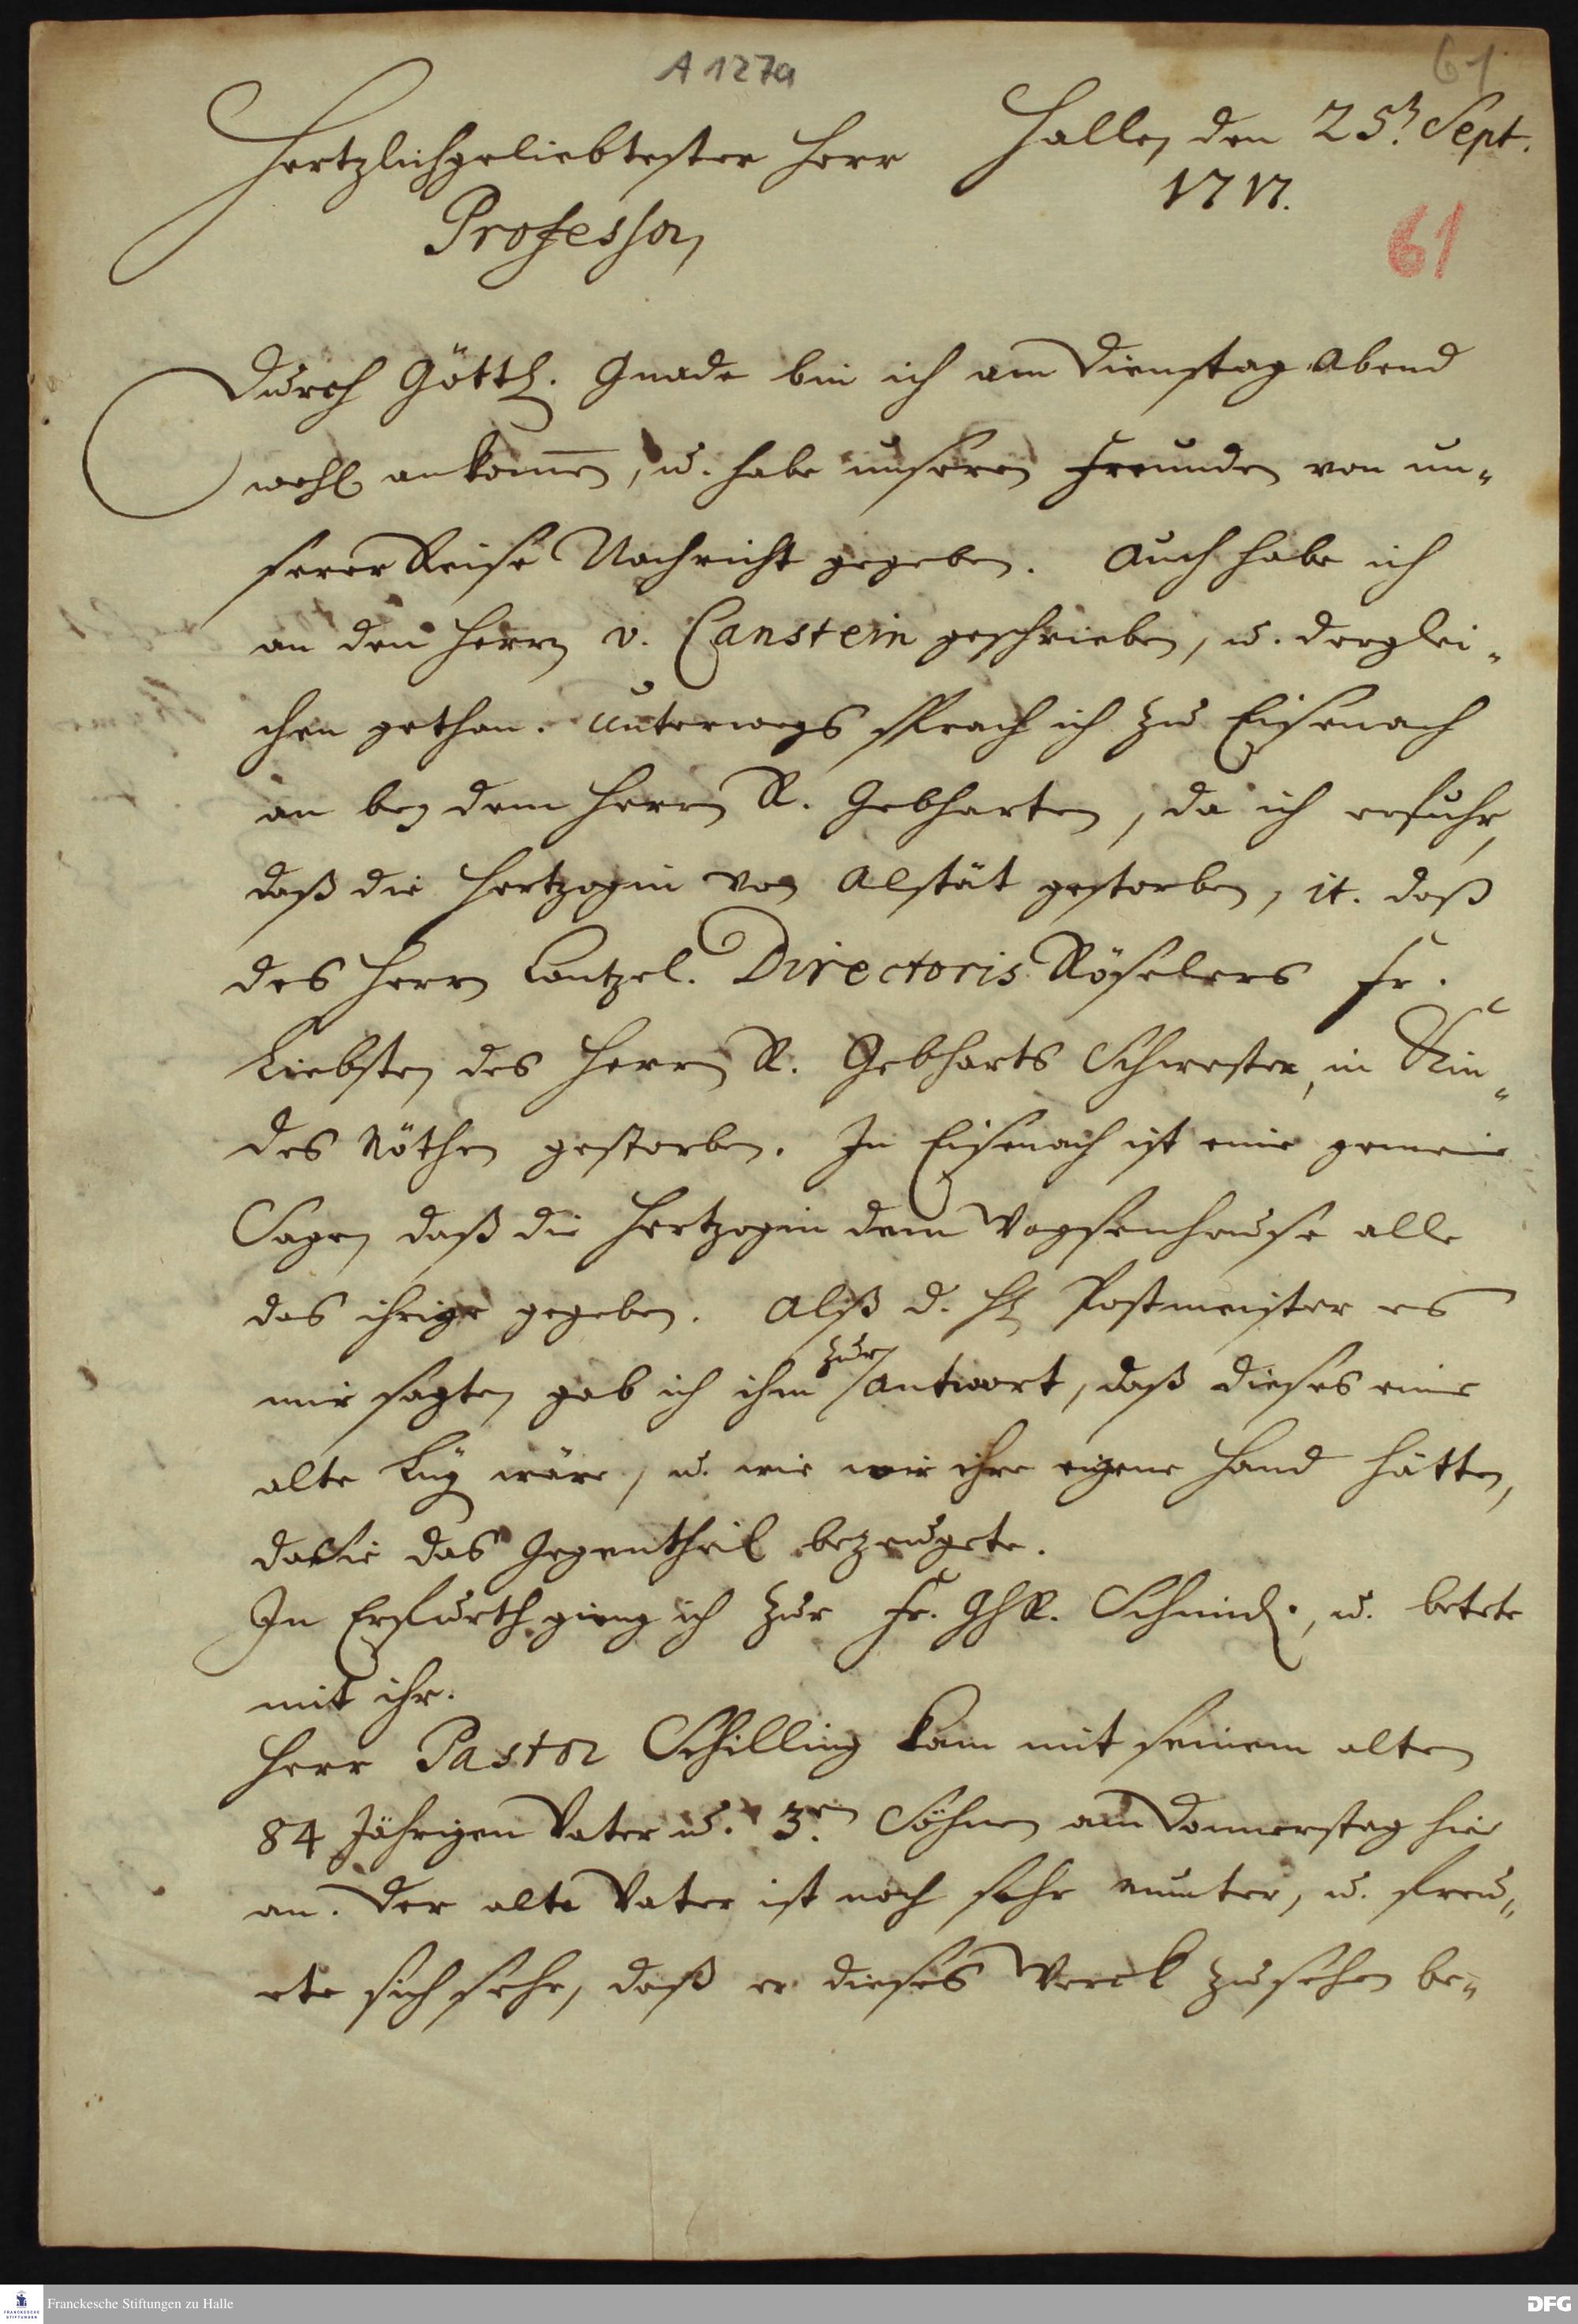 A 127a
61
Halle, den 25t. Sept.
1717.
61
Hertzlichgeliebtester Herr
Professor,
Durch Göttl. Gnade bin ich am Dienstag Abend
wohl ankom̅en, u. habe unseren Freunden von un-
serer Reise Nachricht gegeben. Auch habe ich
an den Herrn v. Canstein geschrieben, u. derglei-
chen gethan. Unterwegs sprach ich zu Eisenach
an bey dem Herrn R. Gebharten, da ich erfuhr,
daß die Hertzogin von Alstät gestorben, it. daß
des Herrn Cantzel. Directoris Röselers Fr.
Liebsten des Herrn R. Gebharts Schwester, in Kin-
des Nöthen gestorben. In Eisenach ist eine gemeine
Sage, daß die Hertzogin dem Waysenhause alle
das ihrige gegeben. Alß d. H. Postmeister es
mir sagte, gab ich ihm zur Antwort, daß dieses eine
alte Lüg wäre, u. wie wir ihre eigene Hand hätten,
da sie das Gegentheil bezeugete.
In Erfurth gieng ich zur Fr. GhR. Schmid., u. betete
mit ihr.
Herr Pastor Schilling kam mit seinem alten
84 Jährigen Vater u. 3en Söhnen am Donnerstag hier
an. Der alte Vater ist noch sehr munter, u. freu-
ete sich sehr, daß er dieses Werck zu sehen be-
Franckesche Stiftungen zu Halle
FRANCKESCHE
STIFTUNGEN
DFG